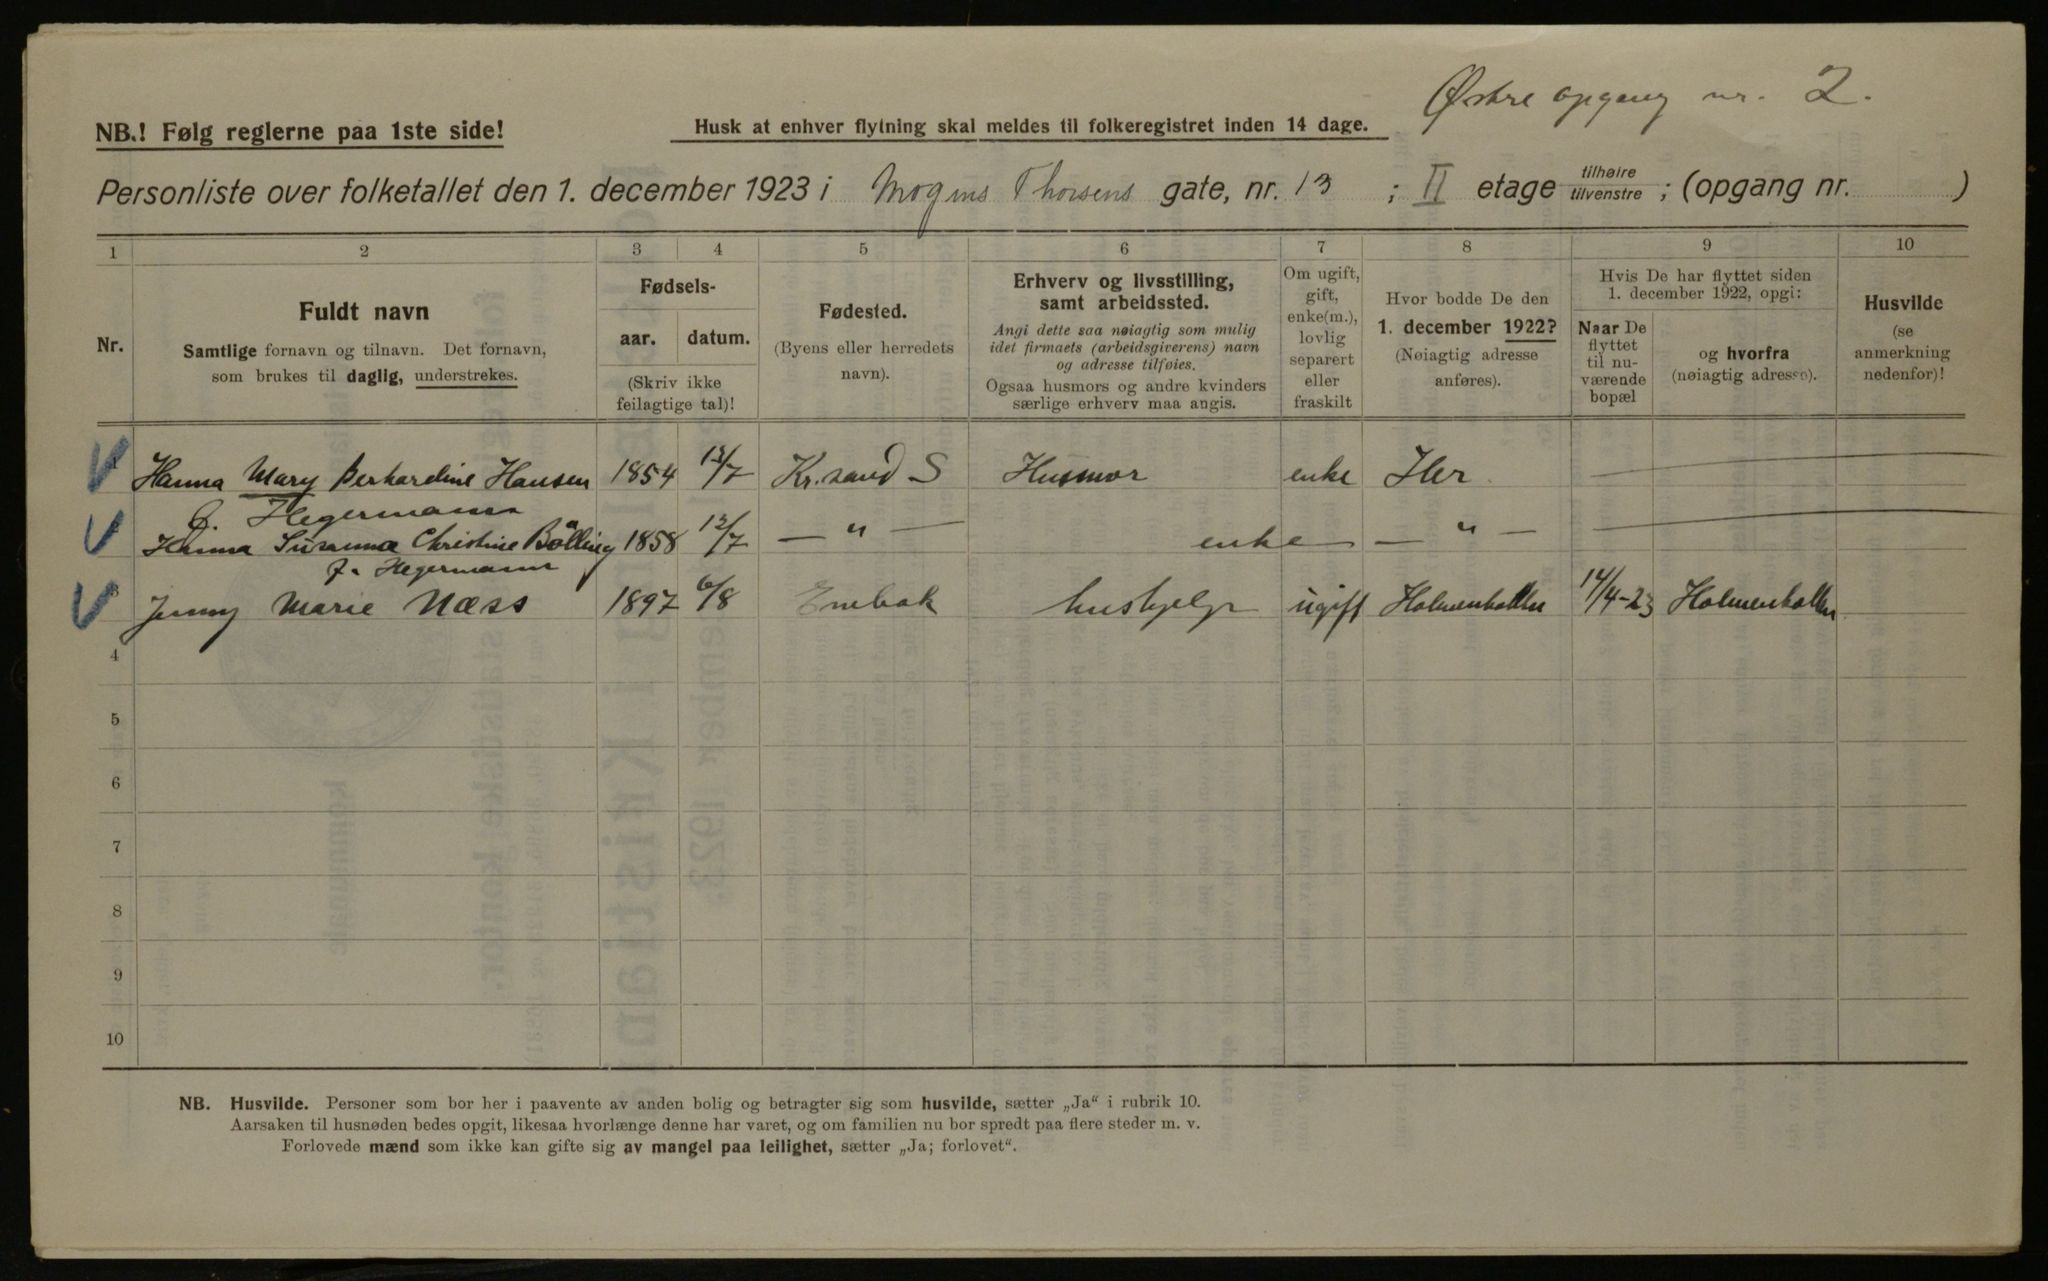 Østre opgang nr. 2.
NB.! Følg reglerne paa 1ste side!
Husk at enhver flytning skal meldes til folkeregistret inden 14 dage.
Personliste over folketallet den 1. december 1923 i Mogens Thorsens gate, nr. 13 ; II etage tilhøire tilvenstre ; (opgang nr. )
1 2 3 4 5 6 7 8 9 10
Nr.
Fuldt navn
Samtlige fornavn og tilnavn. Det fornavn,
som brukes til daglig, understrekes.
Fødsels-
aar. datum.
(Skriv ikke
feilagtige tal)!
Fødested.
(Byens eller herredets
navn).
Erhverv og livsstilling,
samt arbeidssted.
Angi dette saa nøiagtig som mulig
idet firmaets (arbeidsgiverens) navn
og adresse tilføies.
Ogsaa husmors og andre kvinders
særlige erhverv maa angis.
Om ugift,
gift,
enke(m.),
lovlig
separert
eller
fraskilt
Hvor bodde De den
1. december 1922?
(Nøiagtig adresse
anføres).
Hvis De har flyttet siden
1. december 1922, opgi:
Naar De
flyttet
til nu-
værende
bopæl
og hvorfra
(nøiagtig adresse).
Husvilde
(se
anmerkning
nedenfor)!
Hanna Mary Berhardine Hansen 1854 13/7 Kr.sand S Husmor enke Her —
f. Hegermann
Hanna Susanna Christine Bölling 1858 13/7 — " — enke — " — —
f. Hegermann
3 Jenny Marie Næss 1897 6/8 Enebak hushjelp ugift Holmenkollen 14/4-23 Holmenkollen
4
5
6
7
8
9
10
NB. Husvilde. Personer som bor her i paavente av anden bolig og betragter sig som husvilde, sætter „Ja“ i rubrik 10.
Aarsaken til husnøden bedes opgit, likesaa hvorlænge denne har varet, og om familien nu bor spredt paa flere steder m. v.
Forlovede mænd som ikke kan gifte sig av mangel paa leilighet, sætter „Ja; forlovet“.